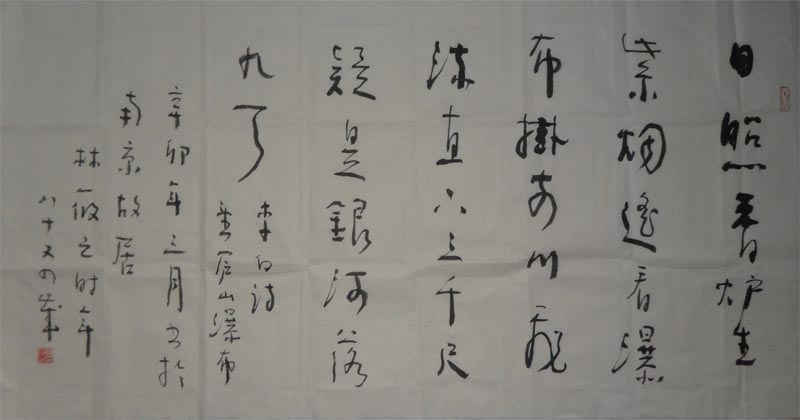 日照香炉生
紫烟遥看瀑
布掛前川飛
流直下三千尺
疑是銀河落
九天
李白詩
望庐山瀑布
辛卯年三月書於
南京故居
林筱之时年
八十又四歲